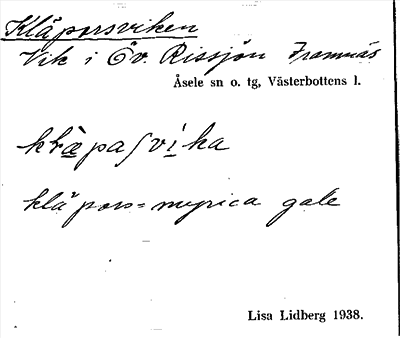 Kläporsviken
Vik i Öv. Rissjön Framnäs
Åsele sn o. tg, Västerbottens l.
klä̀paʃvi̍ka
kläpors = myrica gale
Lisa Lidberg 1938.